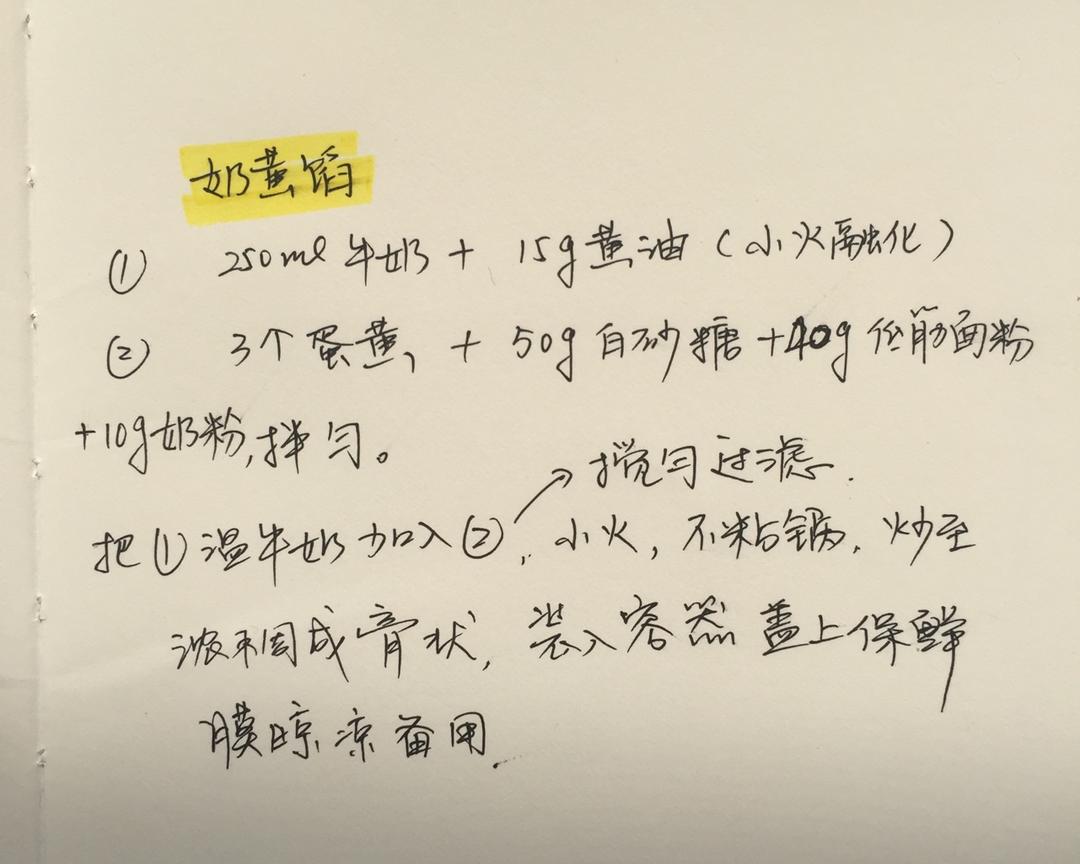 奶黄馅
① 250ml 牛奶 + 15g黄油(小火融化)
② 3个蛋黄 + 50g白砂糖 +40g低筋面粉
+10g奶粉,拌匀。
→搅匀过滤.
把①温牛奶加入②, 小火, 不粘锅, 炒至
浓稠成膏状, 装入容器盖上保鲜
膜晾凉备用.